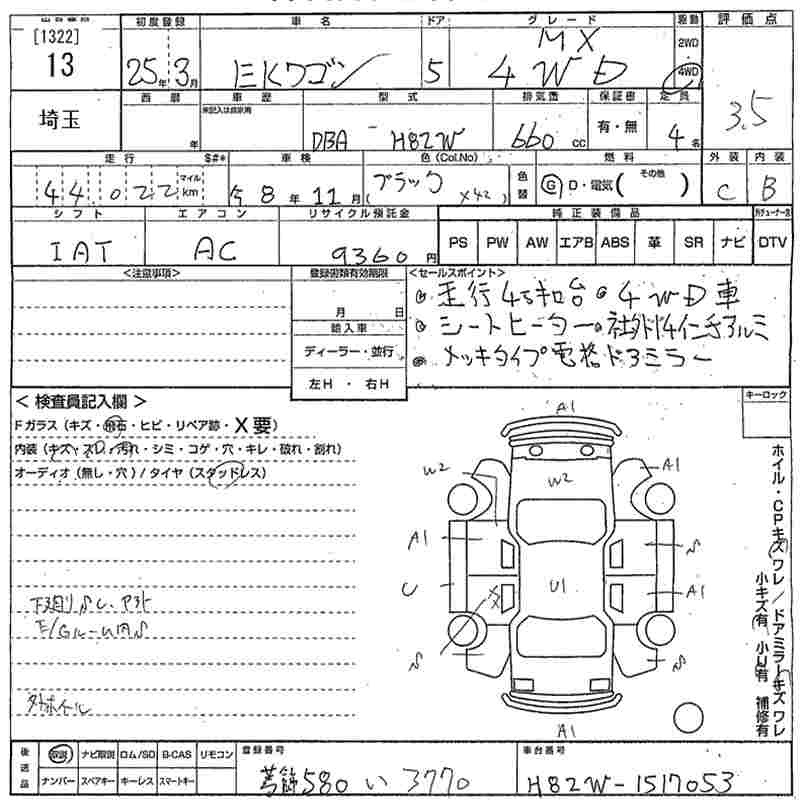 [1322]
13
初度登録
車名
ドア
グレード
駆動
評価点
25年3月
EKワゴン
5
MX
4WD
2WD
4WD
3.5
埼玉
西暦
年
車歴
未記入は自家用
型式
DBA - H82W
排気量
660 cc
保証書
有・無
定員
4名
走行
$#*
車検
色 (Col.No)
燃料
外装
内装
44,022
マイル
km
8年11月
ブラック
( X42 )
色替
G D・電気 ( その他 )
C
B
シフト
エアコン
リサイクル預託金
純正装備品
IAT
AC
9360円
PS PW AW エアB ABS 革 SR ナビ DTV
<注意事項>
登録書類有効期限
月 日
輸入車
ディーラー・並行
左H・右H
<セールスポイント>
走行45キロ台 4WD車
シートヒーター 社外14インチアルミ
メッキタイプ電格ドアミラー
キーロック
< 検査員記入欄 >
Fガラス (キズ・飛石・ヒビ・リペア跡・X要)
内装 (キズ・スレ・汚れ・シミ・コゲ・穴・キレ・破れ・割れ)
オーディオ (無し・穴) / タイヤ (スタッドレス)
下廻りS
E/Gルーム内S
外ホイール
A1
W2
W2
A1
A1
S
U
U1
A1
X
S
S
A1
ホイル・CPキズ ワレ / ドアミラーキズ ワレ
小キズ有 小U有 補修有
後送品
取説 ナビ取説 ロム/SD B-CAS リモコン
ナンバー スペアキー キーレス スマートキー
登録番号
580 い 3770
車台番号
H82W-1517053